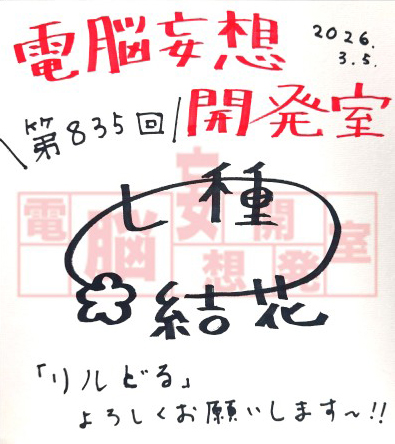 電脳妄想
2026.
3.5.
第835回
開発室
電脳妄想開発室
七種
結花
「リルどる」
よろしくお願いします〜!!